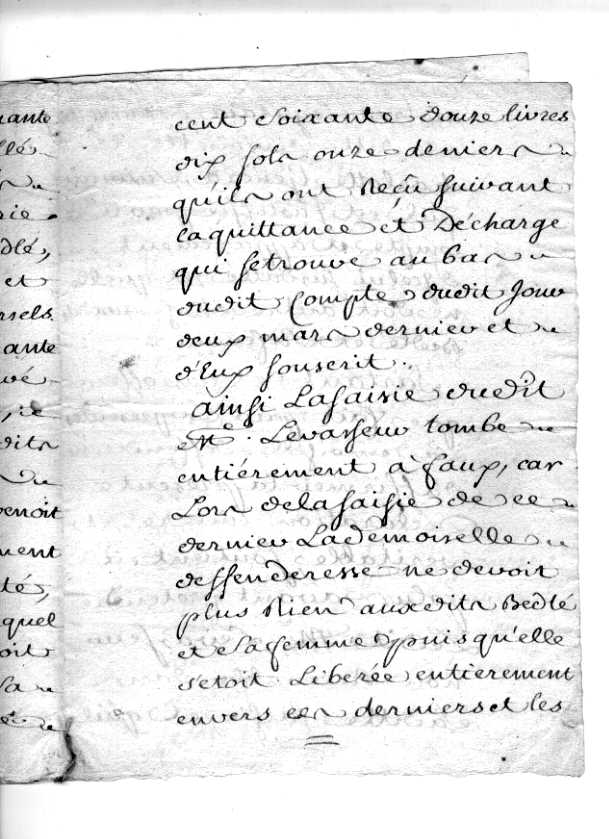 cent Soixante Douze livres
dix sols onze deniers
qu'ils ont Reçu suivant
la quittance et Décharge
qui se trouve au bas
dudit Compte dudit Jour
deux mars dernier et
d'Eux souscrit.
ainsi La saisie dudit
Me. Levasseur tombe
entiérement à faux, car
Lors de la saisie de ce
dernier La demoiselle
deffenderesse ne devoit
plus Rien auxdits Bedlé
et sa femme puisqu'elle
setoit Liberée entierement
envers ces derniers et les
ante
llé
sie
dlé,
et
rsels
ante
vé
dits
venoit
ment
té,
quel
oit
sa